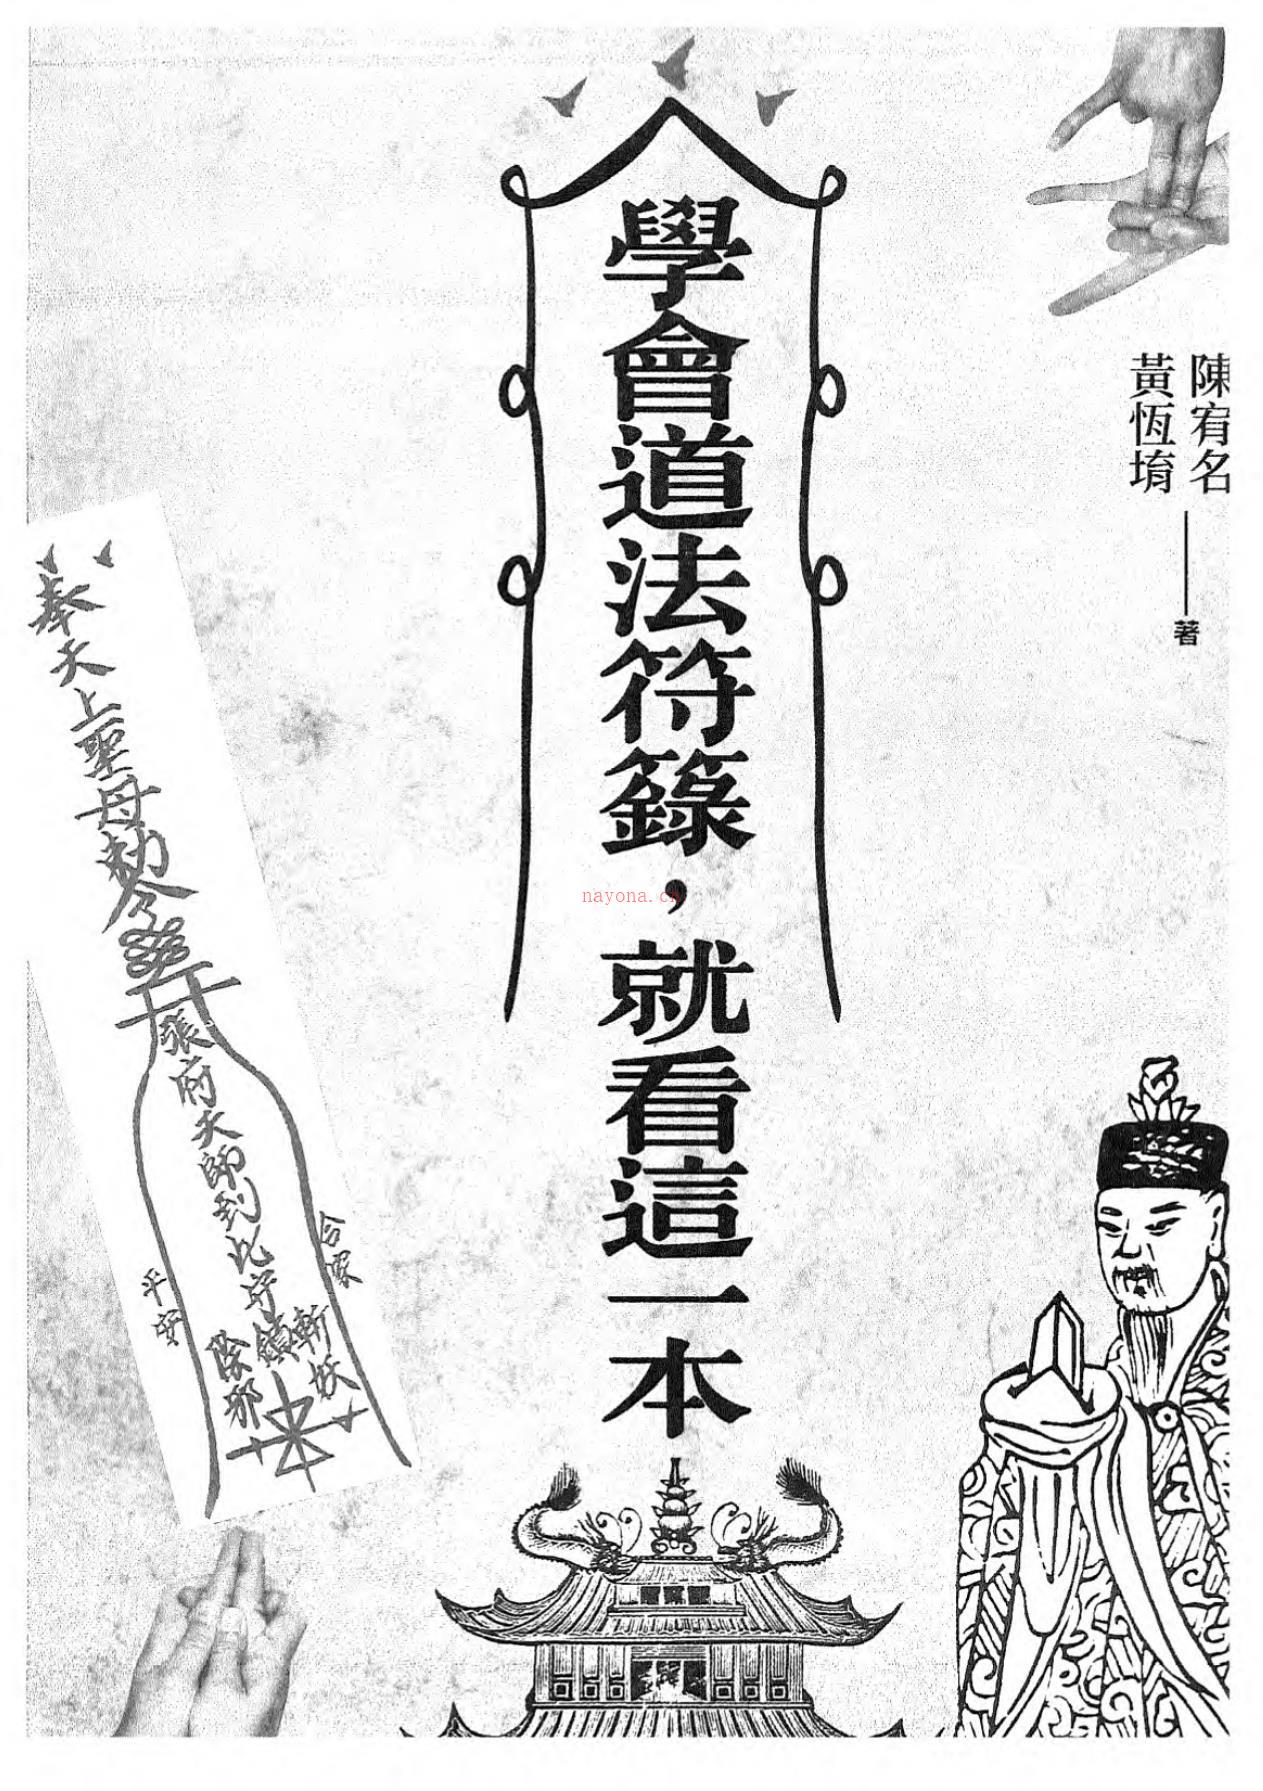 陳宥名
黃恆堉
著
學會道法符籙，就看這一本
nayona.cn
奉天上聖母勅令
張府天師到此
鎮
斬妖
除邪
合家
平安